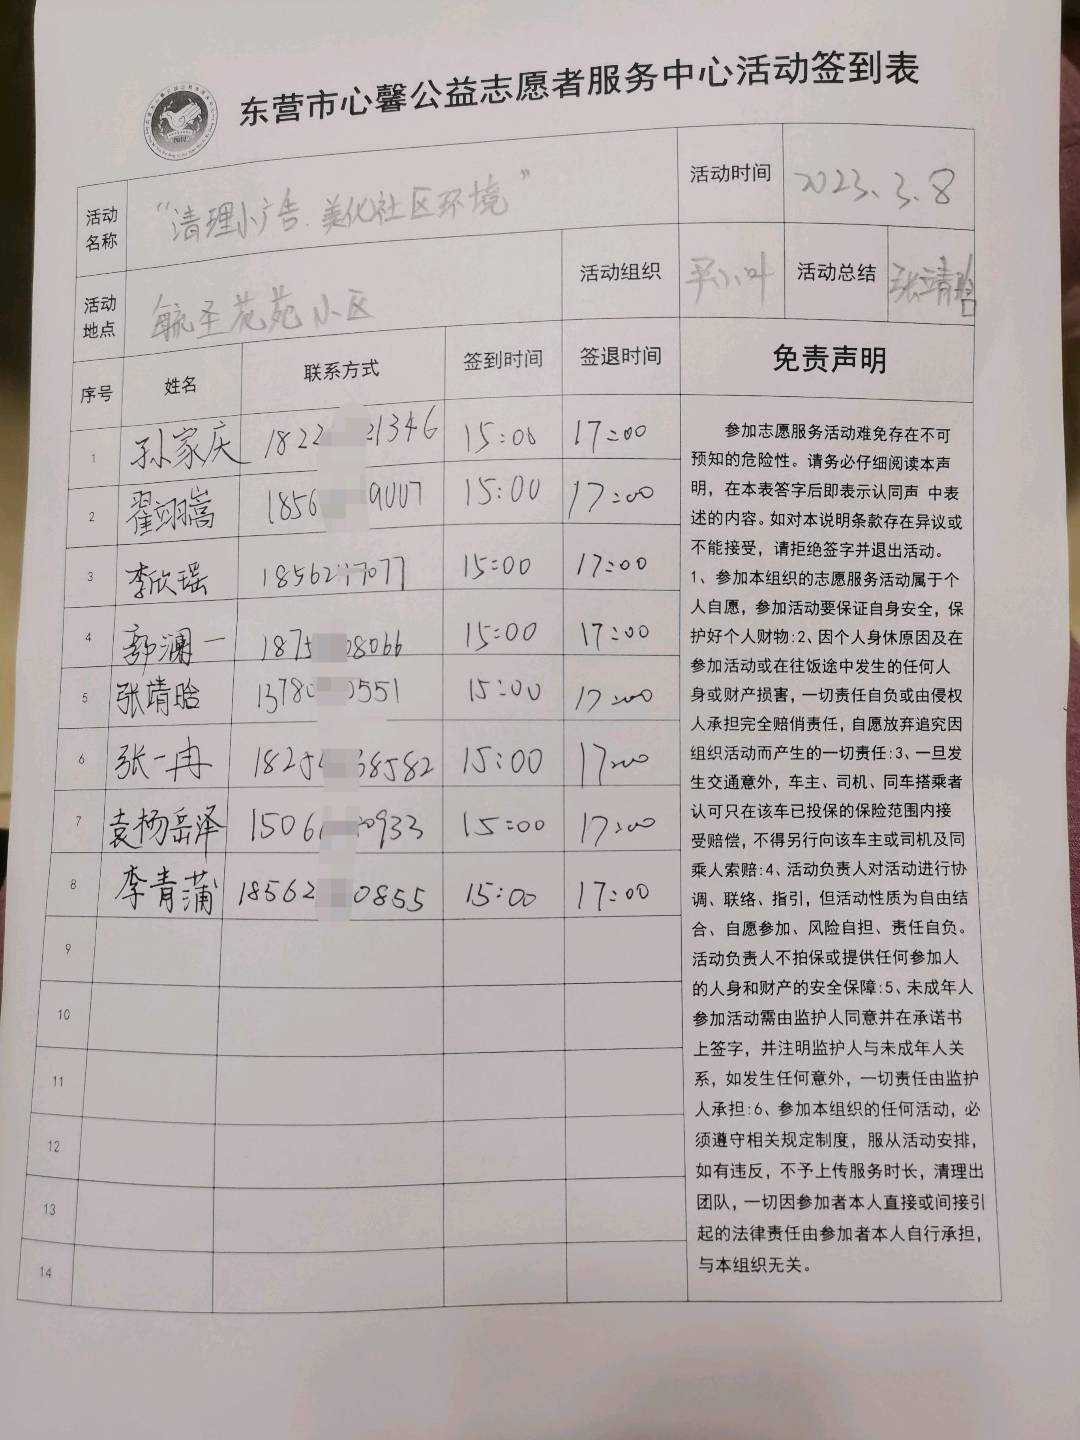 东营市心馨公益志愿者服务中心活动签到表
2012
活动名称 “清理小广告、美化社区环境” 活动时间 2023.3.8
活动地点 毓圣花苑小区 活动组织 活动总结 张靖晗
序号 姓名 联系方式 签到时间 签退时间 免责声明
1 孙家庆 1822 21346 15:00 17:00
2 翟翊嵩 1856 9007 15:00 17:00
3 李欣瑶 18562 7077 15:00 17:00
4 郭澜一 1875 08066 15:00 17:00
5 张靖晗 13780 0551 15:00 17:00
6 张一冉 1825 38582 15:00 17:00
7 袁杨岳泽 1506 0933 15:00 17:00
8 李青蒲 18562 0855 15:00 17:00
9
10
11
12
13
14
参加志愿服务活动难免存在不可
预知的危险性。请务必仔细阅读本声
明，在本表签字后即表示认同声 中表
述的内容。如对本说明条款存在异议或
不能接受，请拒绝签字并退出活动。
1、参加本组织的志愿服务活动属于个
人自愿，参加活动要保证自身安全，保
护好个人财物:2、因个人身休原因及在
参加活动或在往饭途中发生的任何人
身或财产损害，一切责任自负或由侵权
人承担完全赔俏责任，自愿放弃追究因
组织活动而产生的一切责任:3、一旦发
生交通意外，车主、司机、同车搭乘者
认可只在该车已投保的保险范围内接
受赔偿，不得另行向该车主或司机及同
乘人索赔:4、活动负责人对活动进行协
调、联络、指引，但活动性质为自由结
合、自愿参加、风险自担、责任自负。
活动负责人不拍保或提供任何参加人
的人身和财产的安全保障:5、未成年人
参加活动需由监护人同意并在承诺书
上签字，并注明监护人与未成年人关
系，如发生任何意外，一切责任由监护
人承担:6、参加本组织的任何活动，必
须遵守相关规定制度，服从活动安排，
如有违反，不予上传服务时长，清理出
团队，一切因参加者本人直接或间接引
起的法律责任由参加者本人自行承担，
与本组织无关。